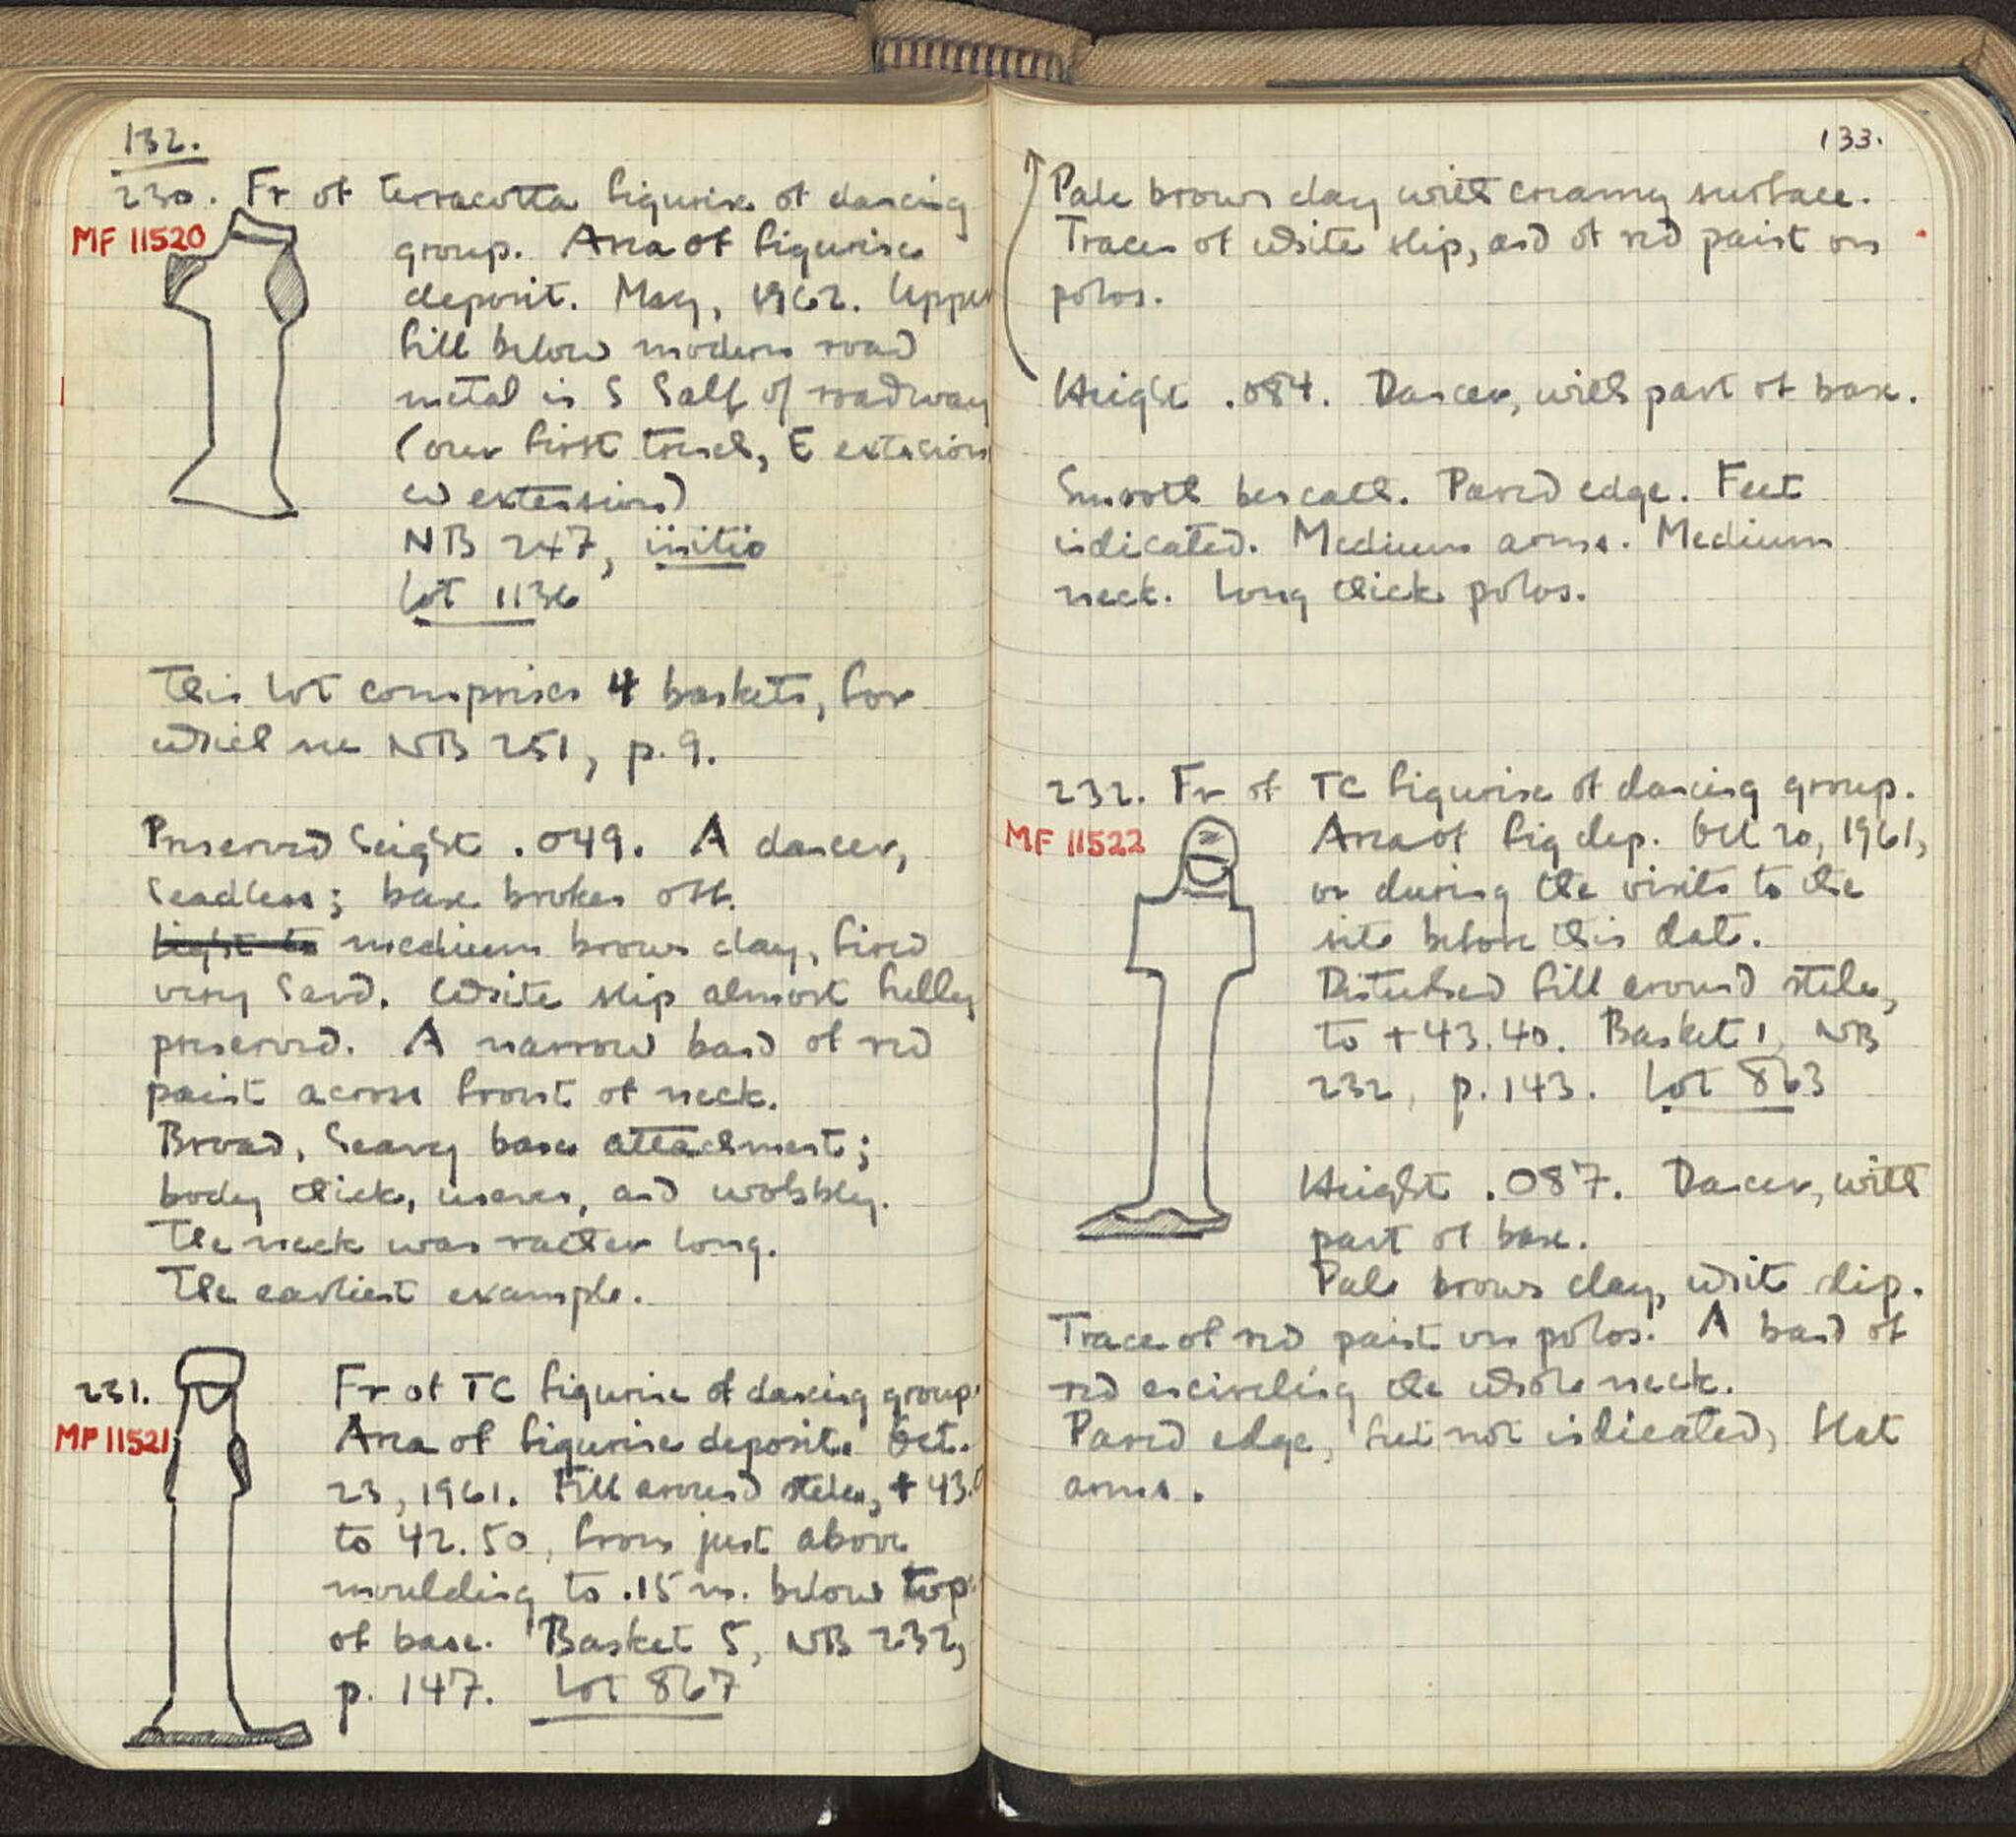 132.
230. Fr of terracotta figurine of dancing
MF 11520
group. Area of figurine
deposit. May, 1962. Upper
fill below modern road
metal in S half of roadway
(over first trench, E extension
W extension)
NB 247, initio
Lot 1136
This lot comprises 4 baskets, for
which see NB 251, p. 9.
Preserved height .049. A dancer,
headless; base broken off.
light to medium brown clay, fired
very hard. White slip almost fully
preserved. A narrow band of red
paint across front of neck.
Broad, heavy base attachment;
body thick, uneven, and wobbly.
The neck was rather long.
The earliest example.
231. Fr of TC figurine of dancing group.
MF 11521
Area of figurine deposit. Oct.
23, 1961. Fill around stele, + 43.
to 42.50, from just above
moulding to .15 m. below top
of base. Basket 5, NB 232,
p. 147. Lot 867
133.
Pale brown clay with creamy surface.
Traces of white slip, and of red paint on
polos.
Height .084. Dancer, with part of base.
Smooth beneath. Pared edge. Feet
indicated. Medium arms. Medium
neck. Long thick polos.
232. Fr of TC figurine of dancing group.
MF 11522
Area of fig dep. Oct 20, 1961,
or during the visits to the
site before this date.
Disturbed fill around stele,
to + 43.40. Basket 1, NB
232, p. 143. Lot 863
Height .087. Dancer, with
part of base.
Pale brown clay, white slip.
Trace of red paint on polos. A band of
red encircling the whole neck.
Pared edge, feet not indicated, flat
arms.